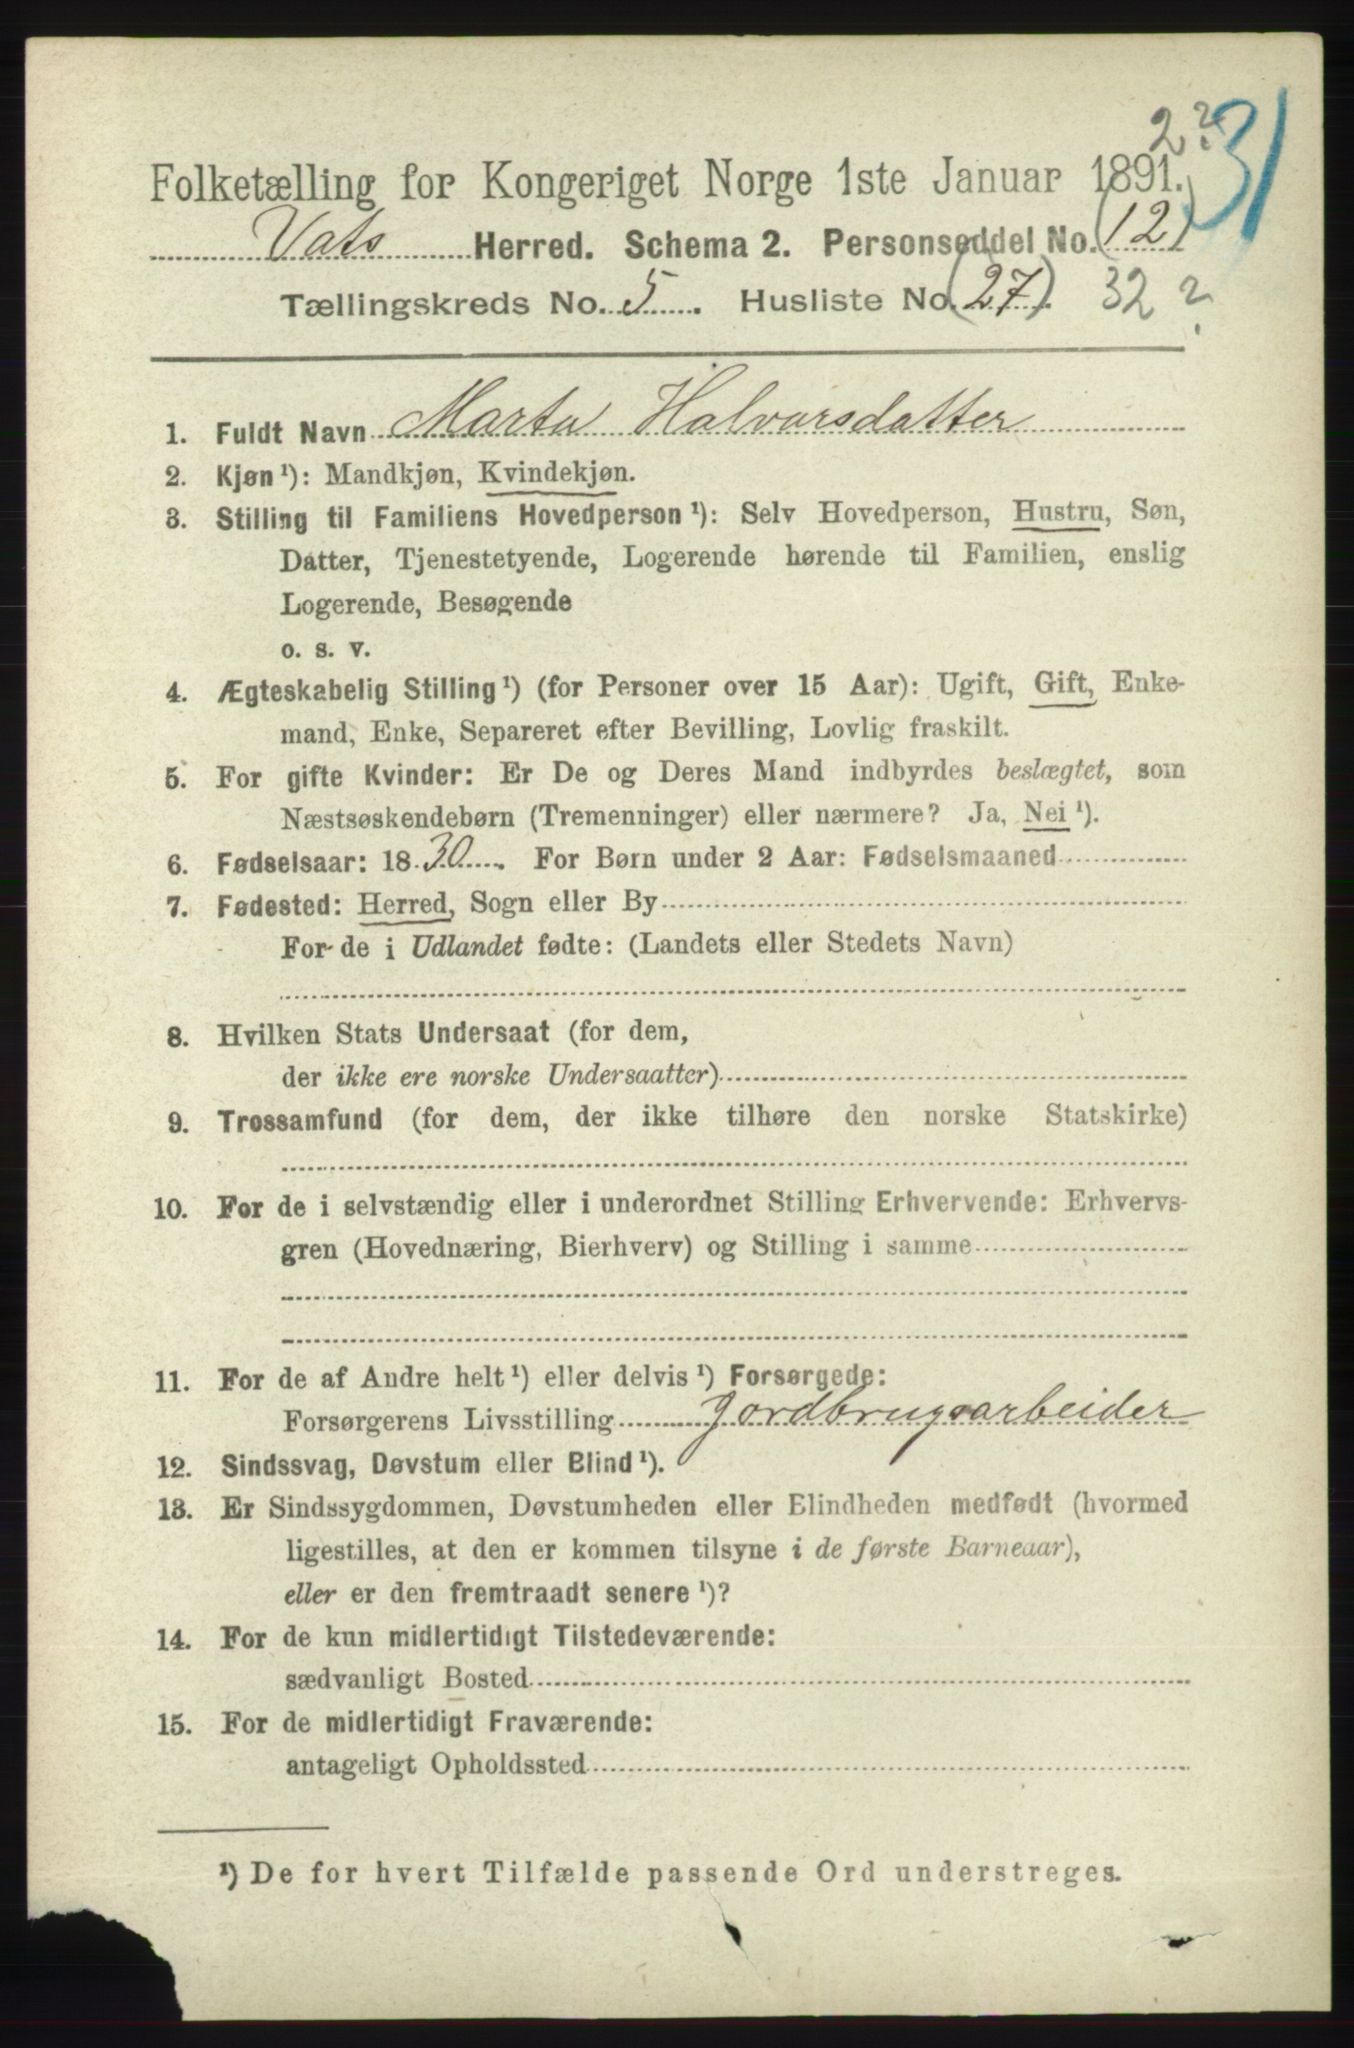 2? 31
Folketælling for Kongeriget Norge 1ste Januar 1891.
Vats Herred. Schema 2. Personseddel No. (12)
Tællingskreds No. 5. Husliste No. (27). 32 ?
1. Fuldt Navn Marta Halvorsdatter
2. Kjøn ¹): Mandkjøn, Kvindekjøn.
3. Stilling til Familiens Hovedperson ¹): Selv Hovedperson, Hustru, Søn,
Datter, Tjenestetyende, Logerende hørende til Familien, enslig
Logerende, Besøgende
o. s. v.
4. Ægteskabelig Stilling ¹) (for Personer over 15 Aar): Ugift, Gift, Enke-
mand, Enke, Separeret efter Bevilling, Lovlig fraskilt.
5. For gifte Kvinder: Er De og Deres Mand indbyrdes beslægtet, som
Næstsøskendebørn (Tremenninger) eller nærmere? Ja, Nei ¹).
6. Fødselsaar: 1830. For Børn under 2 Aar: Fødselsmaaned
7. Fødested: Herred, Sogn eller By
For de i Udlandet fødte: (Landets eller Stedets Navn)
8. Hvilken Stats Undersaat (for dem,
der ikke ere norske Undersaatter)
9. Trossamfund (for dem, der ikke tilhøre den norske Statskirke)
10. For de i selvstændig eller i underordnet Stilling Erhvervende: Erhvervs-
gren (Hovednæring, Bierhverv) og Stilling i samme
11. For de af Andre helt ¹) eller delvis ¹) Forsørgede:
Forsørgerens Livsstilling Jordbrugsarbeider
12. Sindssvag, Døvstum eller Blind ¹).
13. Er Sindssygdommen, Døvstumheden eller Blindheden medfødt (hvormed
ligestilles, at den er kommen tilsyne i de første Barneaar),
eller er den fremtraadt senere ¹)?
14. For de kun midlertidigt Tilstedeværende:
sædvanligt Bosted
15. For de midlertidigt Fraværende:
antageligt Opholdssted
¹) De for hvert Tilfælde passende Ord understreges.